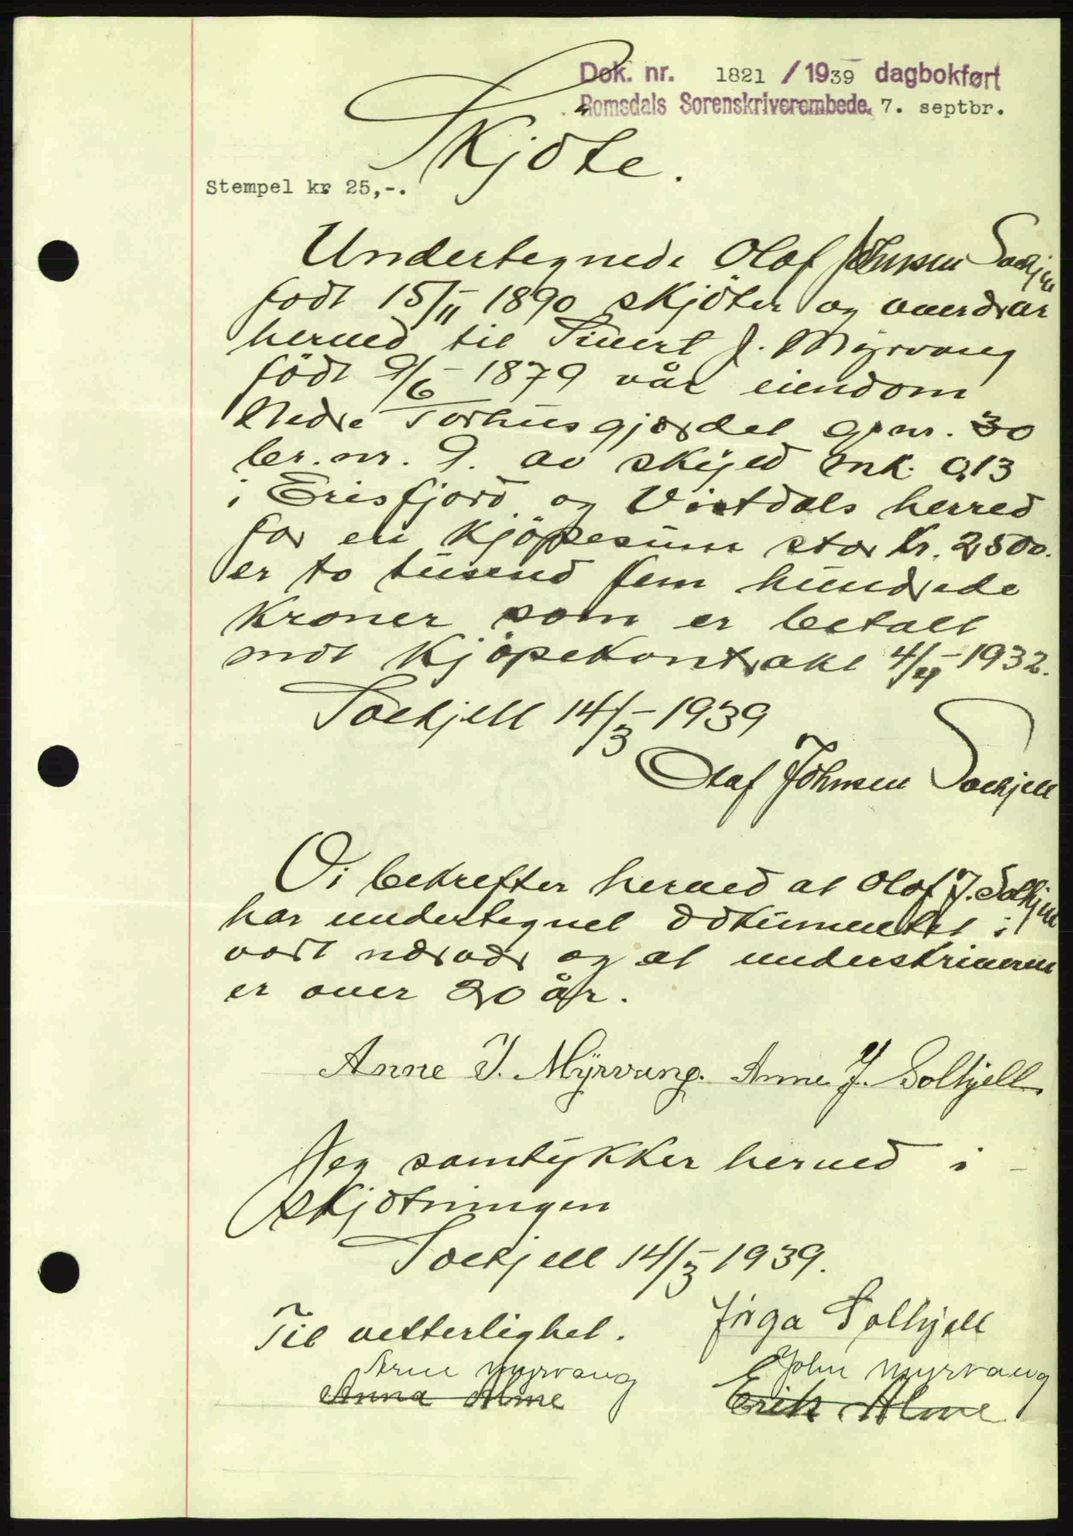 Dok. nr. 1821 / 1939 dagbokført
Romsdals Sorenskriverembede. 7. septbr.
Skjöte.
Stempel kr 25,-.
Undertegnede Olaf Johnsen Solhjell
född 15/11 - 1890 skjöter og overdrar
herved til Sivert J. Myrvang
född 9/6 - 1879 vår eiendom
Nedre Torhusgjærdet grnr. 30
br. nr. 9. av skyld mk. 0,13
i Erisfjord og Vistdals herred
for en kjöpesum stor kr. 2,500.
er to tusend fem hundrede
kroner som er betalt
mot kjöpekontrakt 4/4 - 1932.
Solhjell 14/3 - 1939
Olaf Johnsen Solhjell
Vi bekrefter herved at Olaf J. Solhjell
har undertegnet dokumentet i
vort nærvær og at underskriveren
er over 20 år.
Anne J. Myrvang. Anne J. Solhjell.
Jeg samtykker herved i
skjötningen
Solhjell 14/3 - 1939.
Til vetterlighet. Inga Solhjell
Arne Myrvang John Myrvang
Anna Alme Erik Alme